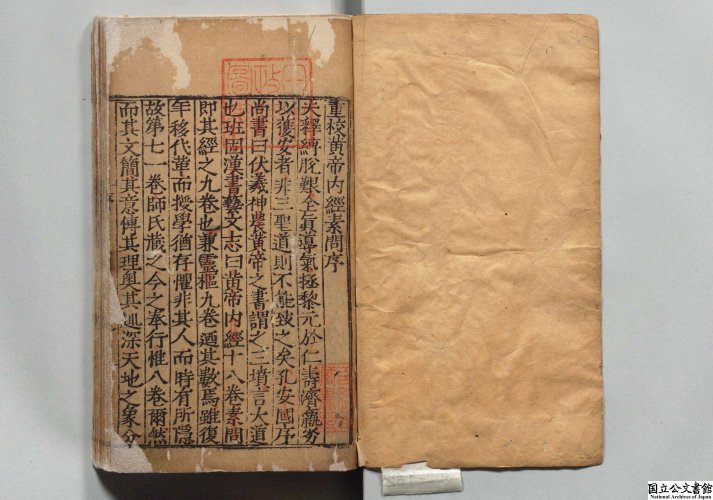 重校黄帝内經素問序
夫釋縛脫艱全眞導氣拯黎元於仁壽濟羸劣
以獲安者非三聖道則不能致之矣孔安國序
尚書曰伏羲神農黄帝之書謂之三墳言大道
也班固漢書藝文志曰黄帝内經十八卷素問
即其經之九卷也兼靈樞九卷廼其數焉雖復
年移代革而授學猶存懼非其人而時有所隱
故第七一卷師氏藏之今之奉行惟八卷爾然
而其文簡其意博其理奥其趣深天地之象分
国立公文書館
National Archives of Japan